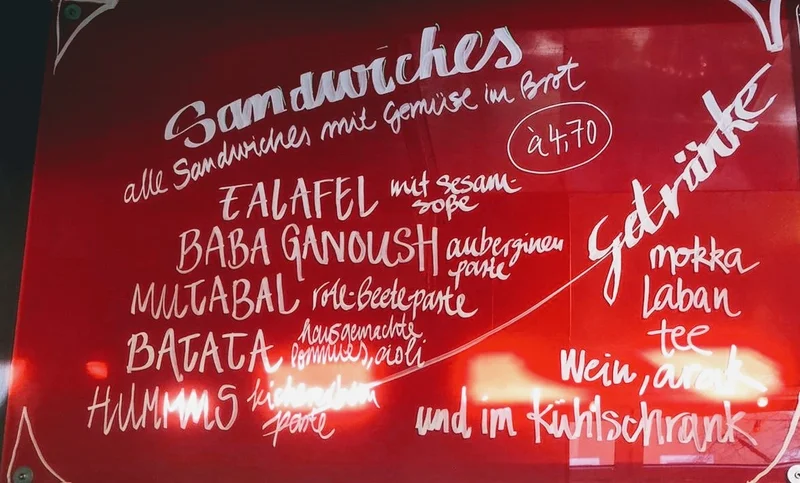 Sandwiches
alle Sandwiches mit Gemüse im Brot
à 4,70
FALAFEL mit Sesam-
soße
BABA GANOUSH auberginen
paste
MUTABAL rote-Beete paste
BATATA hausgemachte
pommes, aioli
HUMMMS kichererbsen
paste
Getränke
mokka
Laban
tee
Wein, arak
und im Kühlschrank